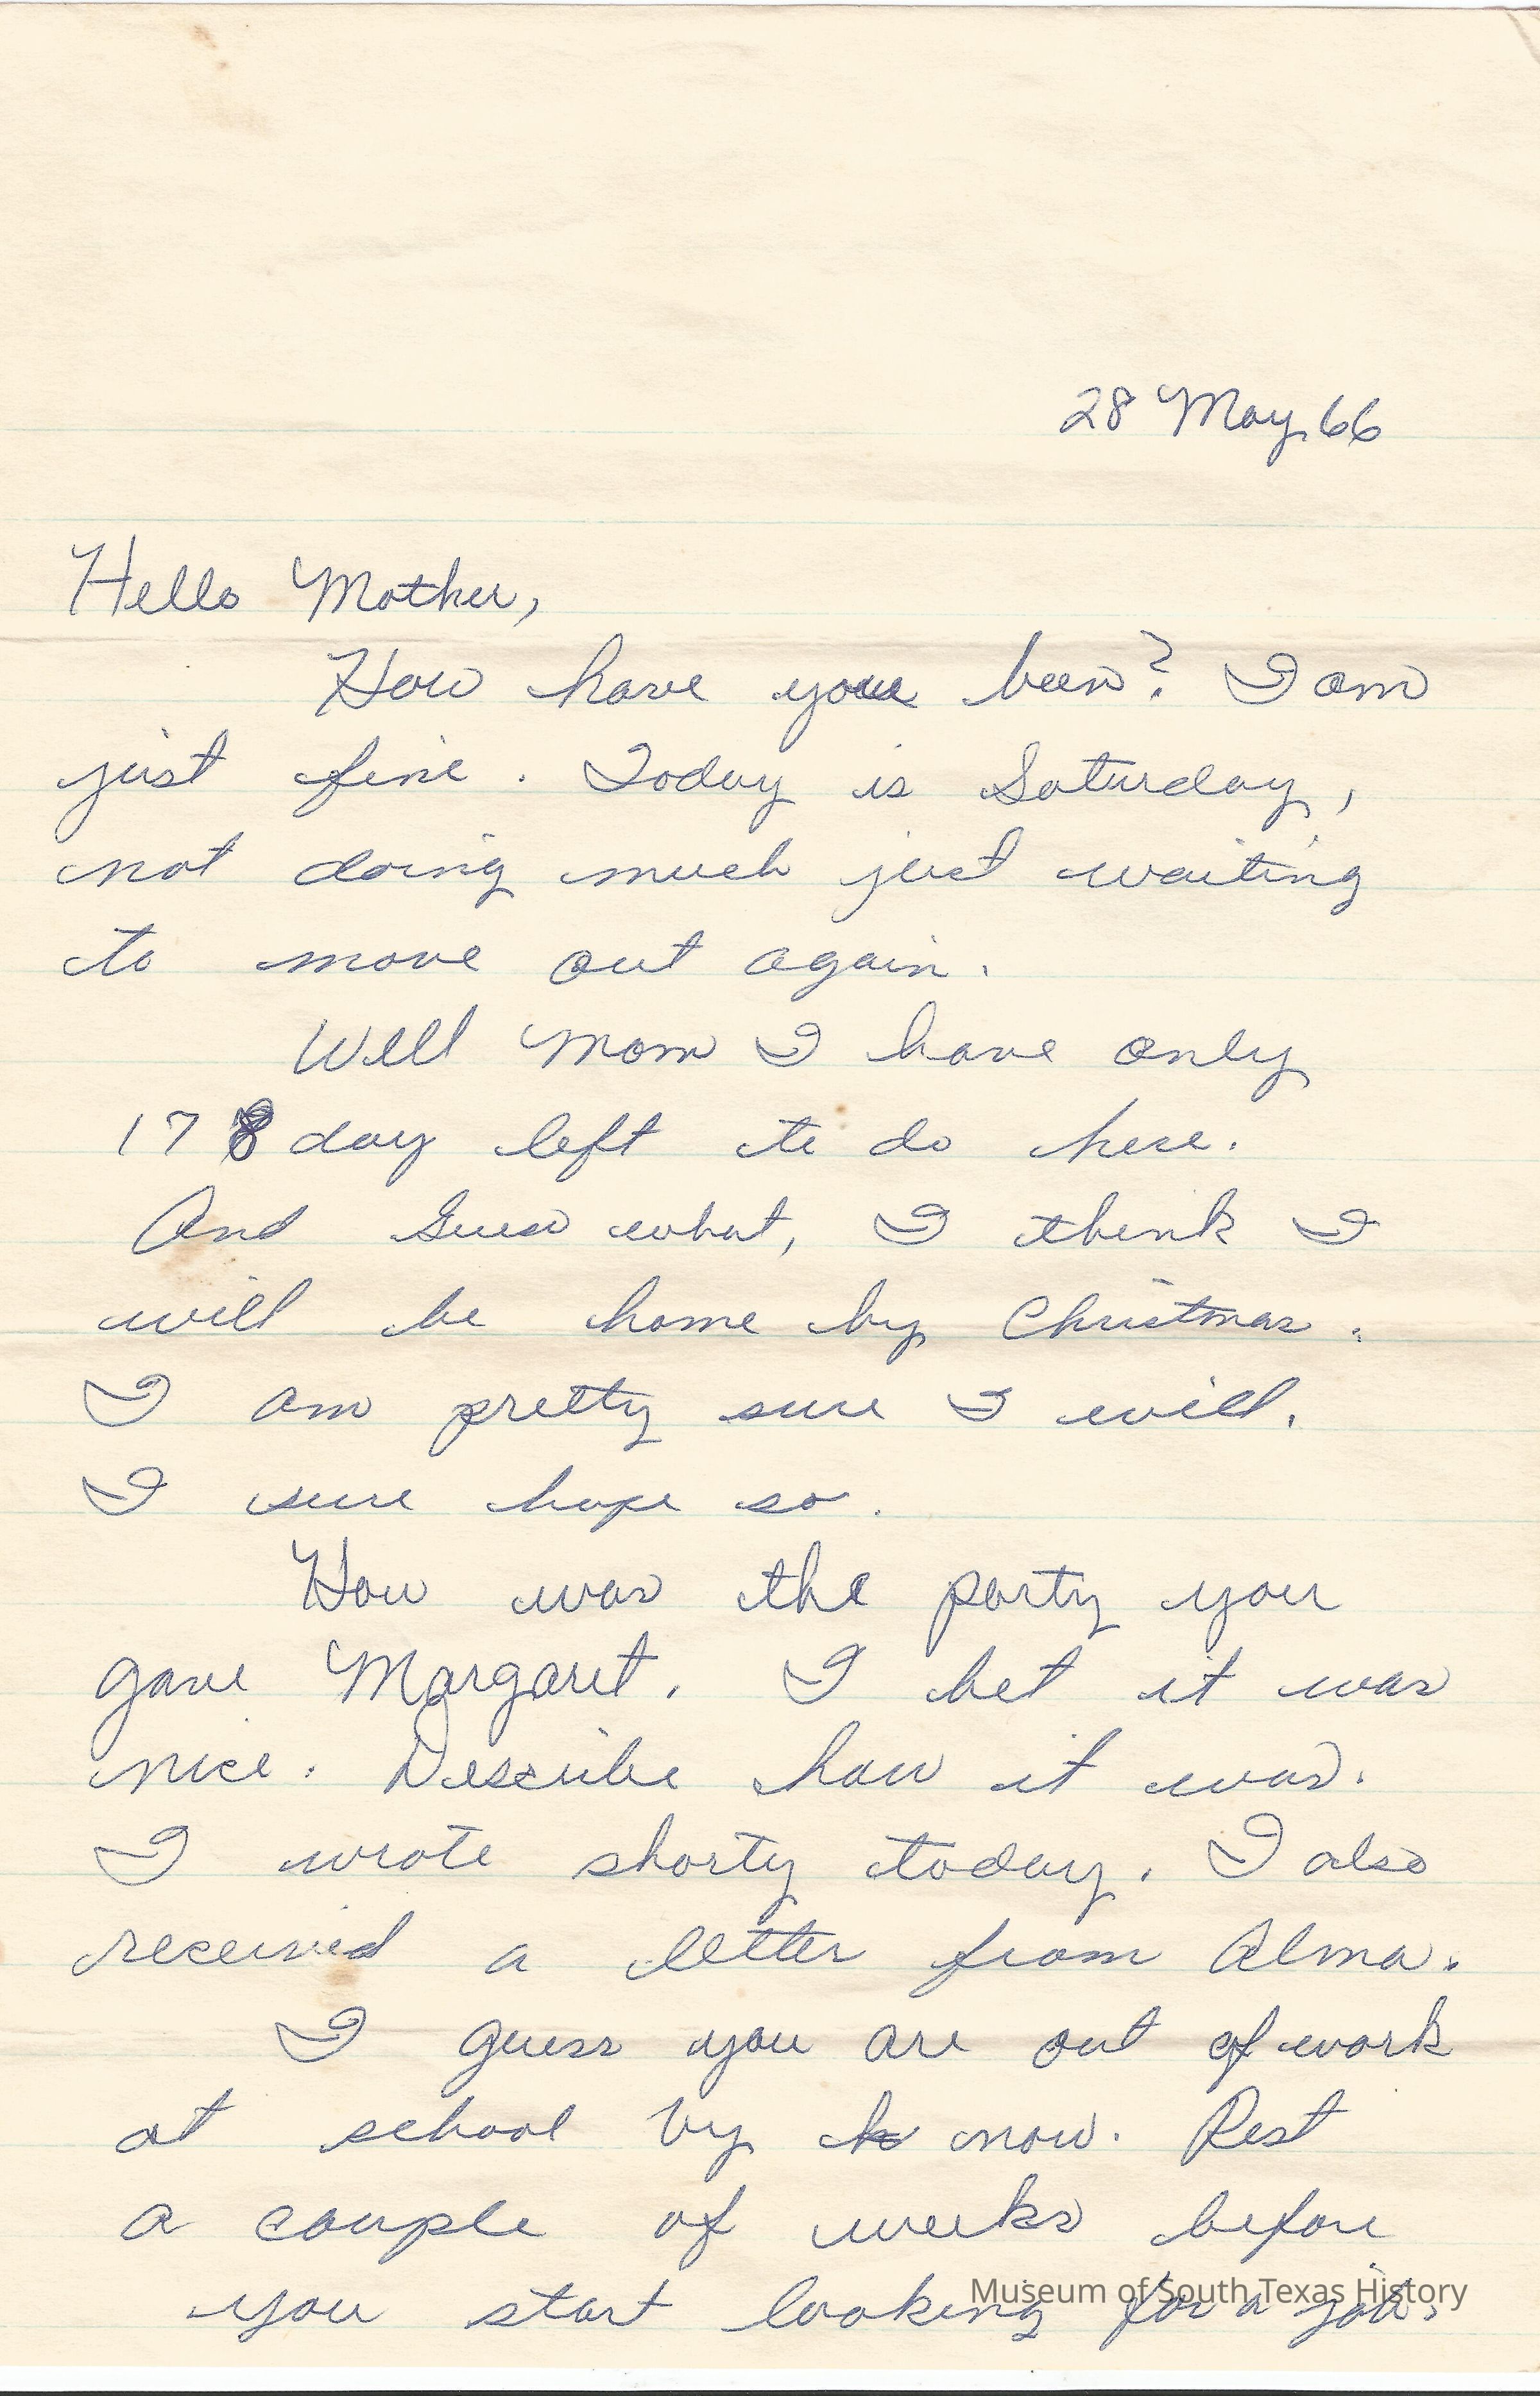 28 May 66
Hello Mother,
How have you been? I am
just fine. Today is Saturday,
not doing much just waiting
to move out again.
Well Mom I have only
178 day left to do here.
And Guess what, I think I
will be home by Christmas.
I am pretty sure I will.
I sure hope so.
How was the party you
gave Margaret. I bet it was
nice. Describe how it was.
I wrote shorty today. I also
received a letter from Alma.
I guess you are out of work
at school by now. Rest
a couple of weeks before
you start looking for a job.
Museum of South Texas History